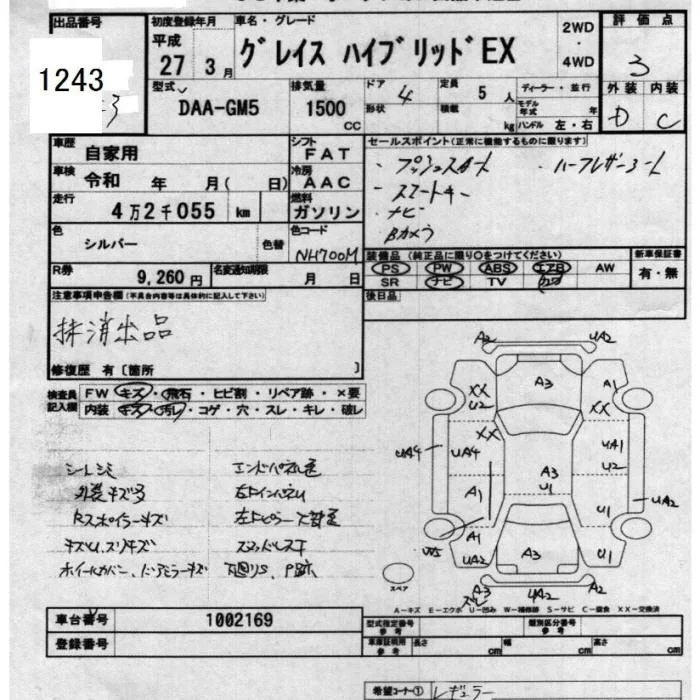 出品番号 初度登録年月 車名・グレード 2WD・4WD 評価点
1243
平成 27 3月 グレイス ハイブリッド EX 3
型式 排気量 ドア 4 定員 5人 ディーラー・並行 外装 内装
DAA-GM5 1500 CC 形状 積載 kg モデル年式 年 D C
ハンドル 左・右
車歴 自家用 シフト FAT セールスポイント(正常に機能するものに限ります)
車検 令和 年 月( 日) 冷房 AAC ・プッシュスタート ・ハーフレザーシート
走行 4万2千055 km 燃料 ガソリン ・スマートキー
・ナビ
色 シルバー 色替 色コード NH700M Bカメラ
装備品(純正品に限り○をつけてください) 新車保証書
R券 9,260円 名変通知期限 月 日 PS PW ABS エアB AW 有・無
SR ナビ TV カワ
注意事項申告欄(不具合内容等は具体的に記入して下さい) 後日品
抹消出品
修復歴 有〔箇所 〕
検査員記入欄 FW キズ・飛石・ヒビ割・リペア跡・×要
内装 キズ・汚レ・コゲ・穴・スレ・キレ・破レ
A2 UA2
A3 A1
XX U2 XX
XX
UA4 UA4 A3 U1 UA1 U2
A1 U1 UA2
A1
UA2 A3 U1
A3 UA2 A2
スペア
シートシミ エンドパネル色
外装キズ多
Rスポイラーキズ
キズU、スリキズ スタッドレスT
ホイールカバー、ドアミラーキズ
A−キズ E−エクボ U−凹み W−補修跡 S−サビ C−腐食 XX−交換済
車台番号 1002169 型式指定番号 参考 類別区分番号 参考
登録番号 車庫証明用 参考 長さ cm 幅 cm 高さ cm
希望コーナー① レギュラー